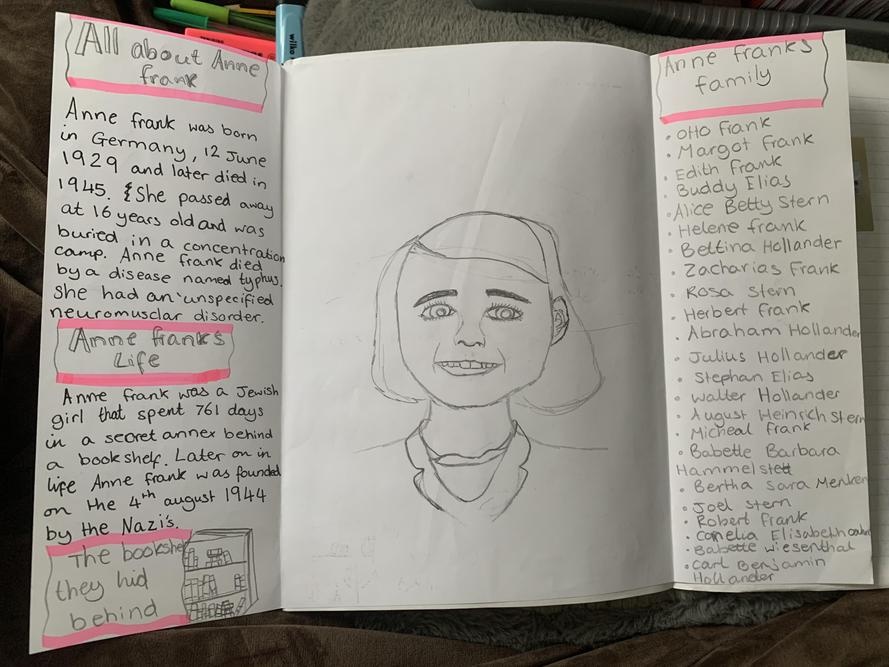 All about Anne
frank
Anne frank was born
in Germany, 12 June
1929 and later died in
1945. She passed away
at 16 years old and was
buried in a concentration
camp. Anne frank died
by a disease named typhus.
She had an unspecified
neuromusclar disorder.
Anne franks
Life
Anne frank was a Jewish
girl that spent 761 days
in a secret annex behind
a bookshelf. Later on in
life Anne frank was founded
on the 4th august 1944
by the Nazi's.
The bookshelf
they hid
behind
Anne franks
family
• Otto frank
• Margot frank
• Edith frank
• Buddy Elias
• Alice Betty Stern
• Helene frank
• Bettina Hollander
• Zacharias frank
• Rosa Stern
• Herbert frank
• Abraham Hollander
• Julius Hollander
• Stephan Elias
• Walter Hollander
• August Heinrich Stern
• Micheal frank
• Babette Barbara
Hammelstett
• Bertha Sara
• Joel Stern
• Robert frank
• Cornelia Elisabeth
• Babette wiesenthal
• Carl Benjamin
Hollander
wilko